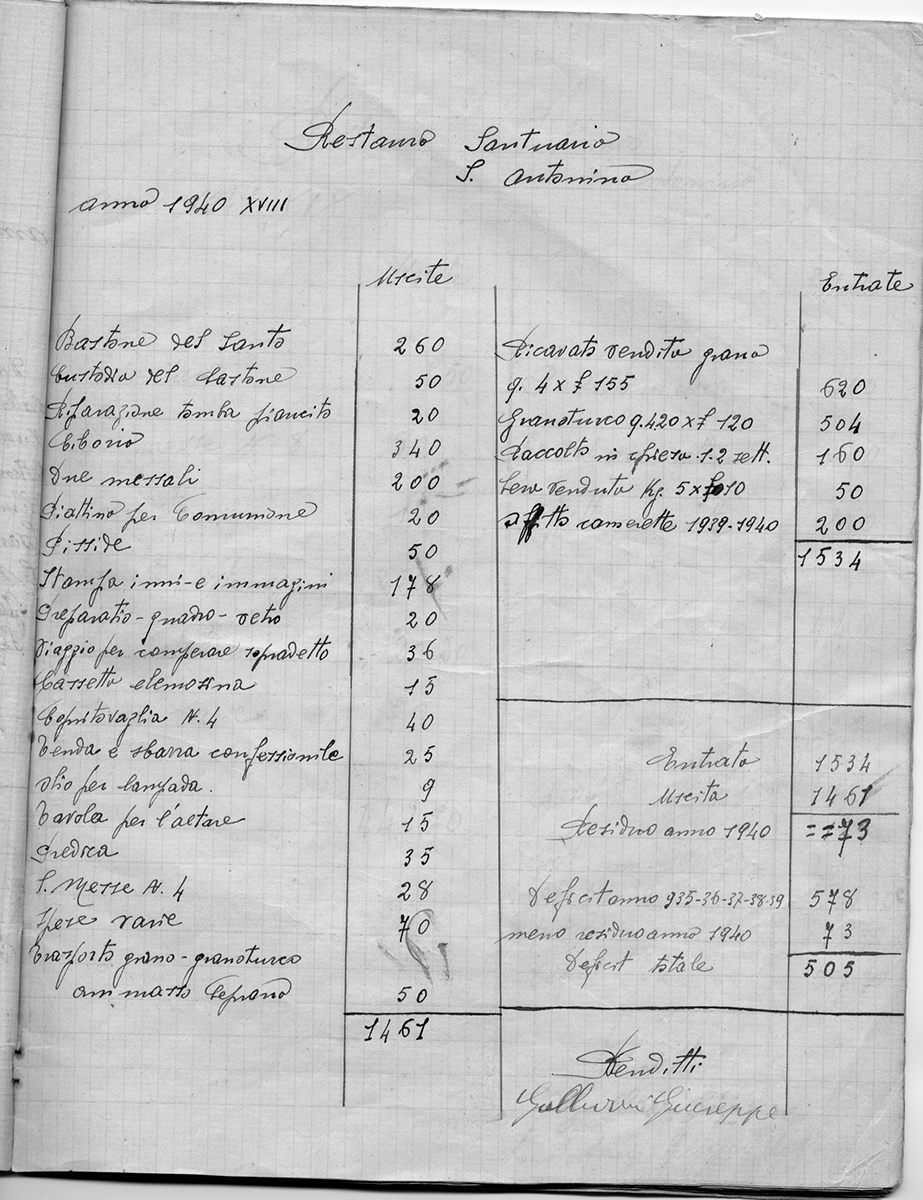 Restauro Santuario
S. Antonino
anno 1940 XVIII
Uscite
Bastone del Santo 260
Custodia del bastone 50
Riparazione tomba piancito 20
Ciborio 340
Due messali 200
Piattino per Comunione 20
Pisside 50
Stampa inni-e immagini 178
Preparatio-quadro-vetro 20
Viaggio per comperare sopradetto 36
Cassetta elemosina 15
Copritovaglia N. 4 40
Tenda e sbarra confessionile 25
Olio per lampada. 9
Tavola per l'altare 15
Predica 35
S. Messe N. 4 28
Spese varie 70
Trasporto grano-granoturco
ammasso Ceprano 50
1461
Entrate
Ricavato vendita grano
q. 4 x £ 155 620
Granoturco q. 420 x £ 120 504
Raccolto in chiesa 1.2 sett. 160
venduto Kg. 5 x 10 50
Affitto camerette 1939-1940 200
1534
Entrata 1534
Uscita 1461
Residuo anno 1940 ==73
Deficit anno 935-36-37-38-39 578
meno residuo anno 1940 73
Deficit totale 505
Renditti
Giuseppe